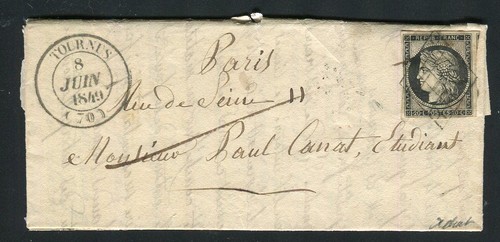 TOURNUS
8
JUIN
1849
(70)
REPUB. FRANC.
20 C. POSTES 20 C.
Paris
Rue de Seine 11
Monsieur Paul Canat, Etudiant